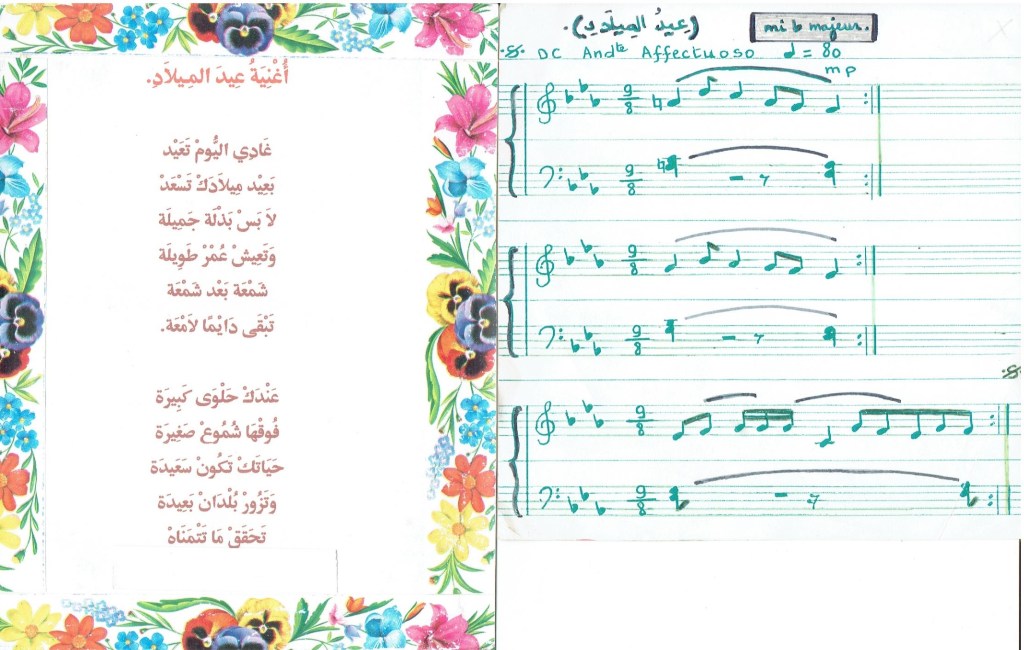 أُغْنِيَةُ عِيدَ المِيلاَدِ.
غَادِي اليُّومْ تَعَيْد
بَعِيْد مِيلاَدَكْ تَسْعَدْ
لاَ بَسْ بَدْلَة جَمِيلَة
وَتَعِيشْ عُمْرْ طَوِيلَة
شَمْعَة بَعْد شَمْعَة
تَبْقَى دَايْمًا لاَمْعَة.
عَنْدَكْ حَلْوَى كَبِيرَة
فُوقْهَا شُمُوعْ صَغِيرَة
حَيَاتَكْ تَكُونْ سَعَيدَة
وَتَزُورْ بُلْدَانْ بَعِيدَة
تَحَقَقْ مَا تَتْمَنَاهْ
(عِيدُ المِيلَادِ).
mi b majeur.
DC Andte Affectuoso ♩ = 80
mp
9/8
9/8
9/8
9/8
9/8
9/8